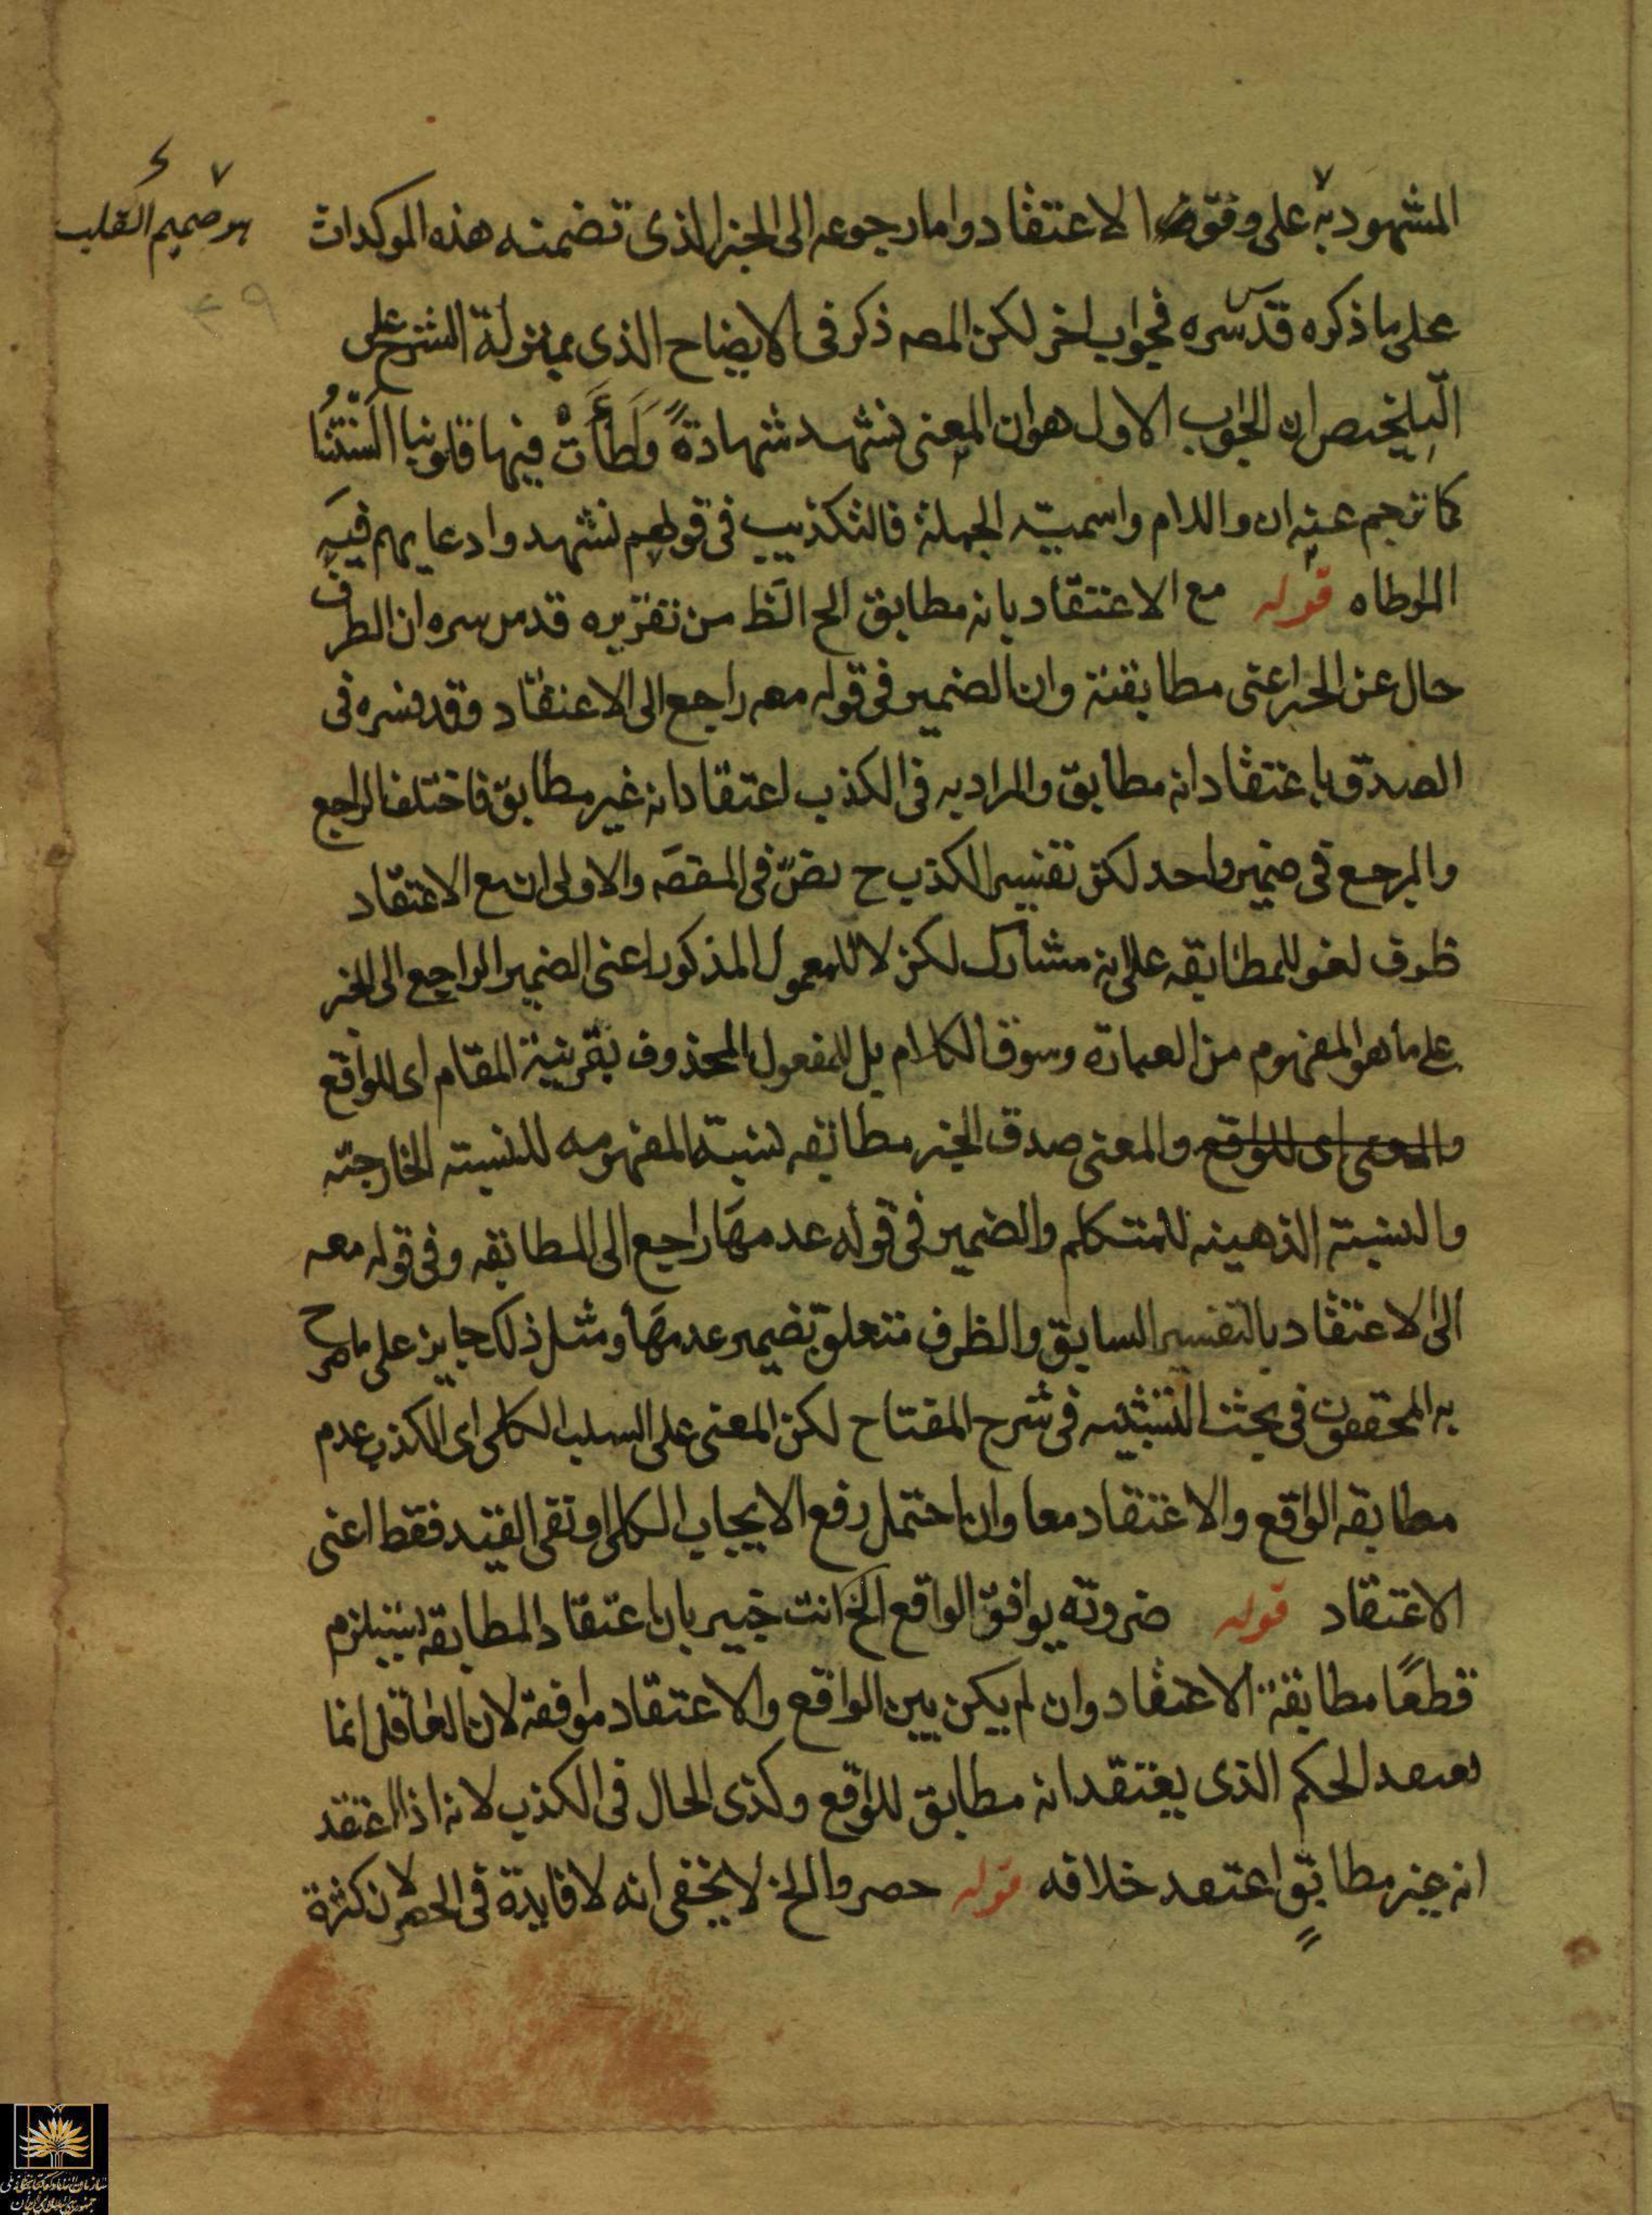 المشهود به على وفق الاعتقاد واما رجوعه الى الخبر الذى تضمنه هذه الموكدات
هو صميم القلب
على ما ذكره قدس سره فجواب اخر لكن المصه ذكر فى الايضاح الذى بمنزلة الشرح على
التلخيص ان الجواب الاول هو ان المعنى نشهد شهادةً وَطَأَتْ فيها قلوبنا اَلْسِنَتُنا
كما ترجم عنه ان واللام واسميّه الجملة فالتكذيب فى قولهم نشهد وادعايهم فيه
المواطاه قوله مع الاعتقاد بانه مطابق الخ الظ من تقريره قدس سره ان الظرف
حال عن الخبر اعنى مطابقته وان الضمير فى قوله معه راجع الى الاعتقاد وقد فسره فى
الصدق باعتقاد انه مطابق والمراد به فى الكذب اعتقاد انه غير مطابق فاختلف الراجع
والمرجع فى ضمير واحد لكن تفسير الكذب ح نصّ فى المقصَه والاولى ان مع الاعتقاد
ظرف لغو للمطابقه على انه مشارك لكن لا للمعمول المذكور اعنى الضمير الراجع الى الخبر
على ما هو المفهوم من العبارة وسوق الكلام بل للمفعول المحذوف بقرينة المقام اى للواقع
والمعنى اى للواقع والمعنى صدق الخبر مطابقه نسبته المفهومه للنسبته الخارجيّه
والنسبته الذهينه للمتكلم والضمير فى قوله عدمها راجع الى المطابقه وفى قوله معه
الى الاعتقاد بالتفسير السابق والظرف متعلق بضمير عدمها ومثل ذلك جايز على ما صرح
به المحققون فى بحث التشبيه فى شرح المفتاح لكن المعنى على السلب الكلى اى الكذب عدم
مطابقه الواقع والاعتقاد معا وان احتمل رفع الايجاب الكلى او نفى القيد فقط اعنى
الاعتقاد قوله ضرورته يوافق الواقع الخ انت خبير بان اعتقاد المطابقه يستلزم
قطعًا مطابقة الاعتقاد وان لم يكن بين الواقع والاعتقاد موافقه لان العاقل انما
يعتقد الحكم الذى يعتقد انه مطابق للواقع وكذى الحال فى الكذب لانه اذا اعتقد
انه غير مطابق اعتقد خلافه قوله حصروا الخ لا يخفى انه لا فايدة فى الحصر لان كثرة